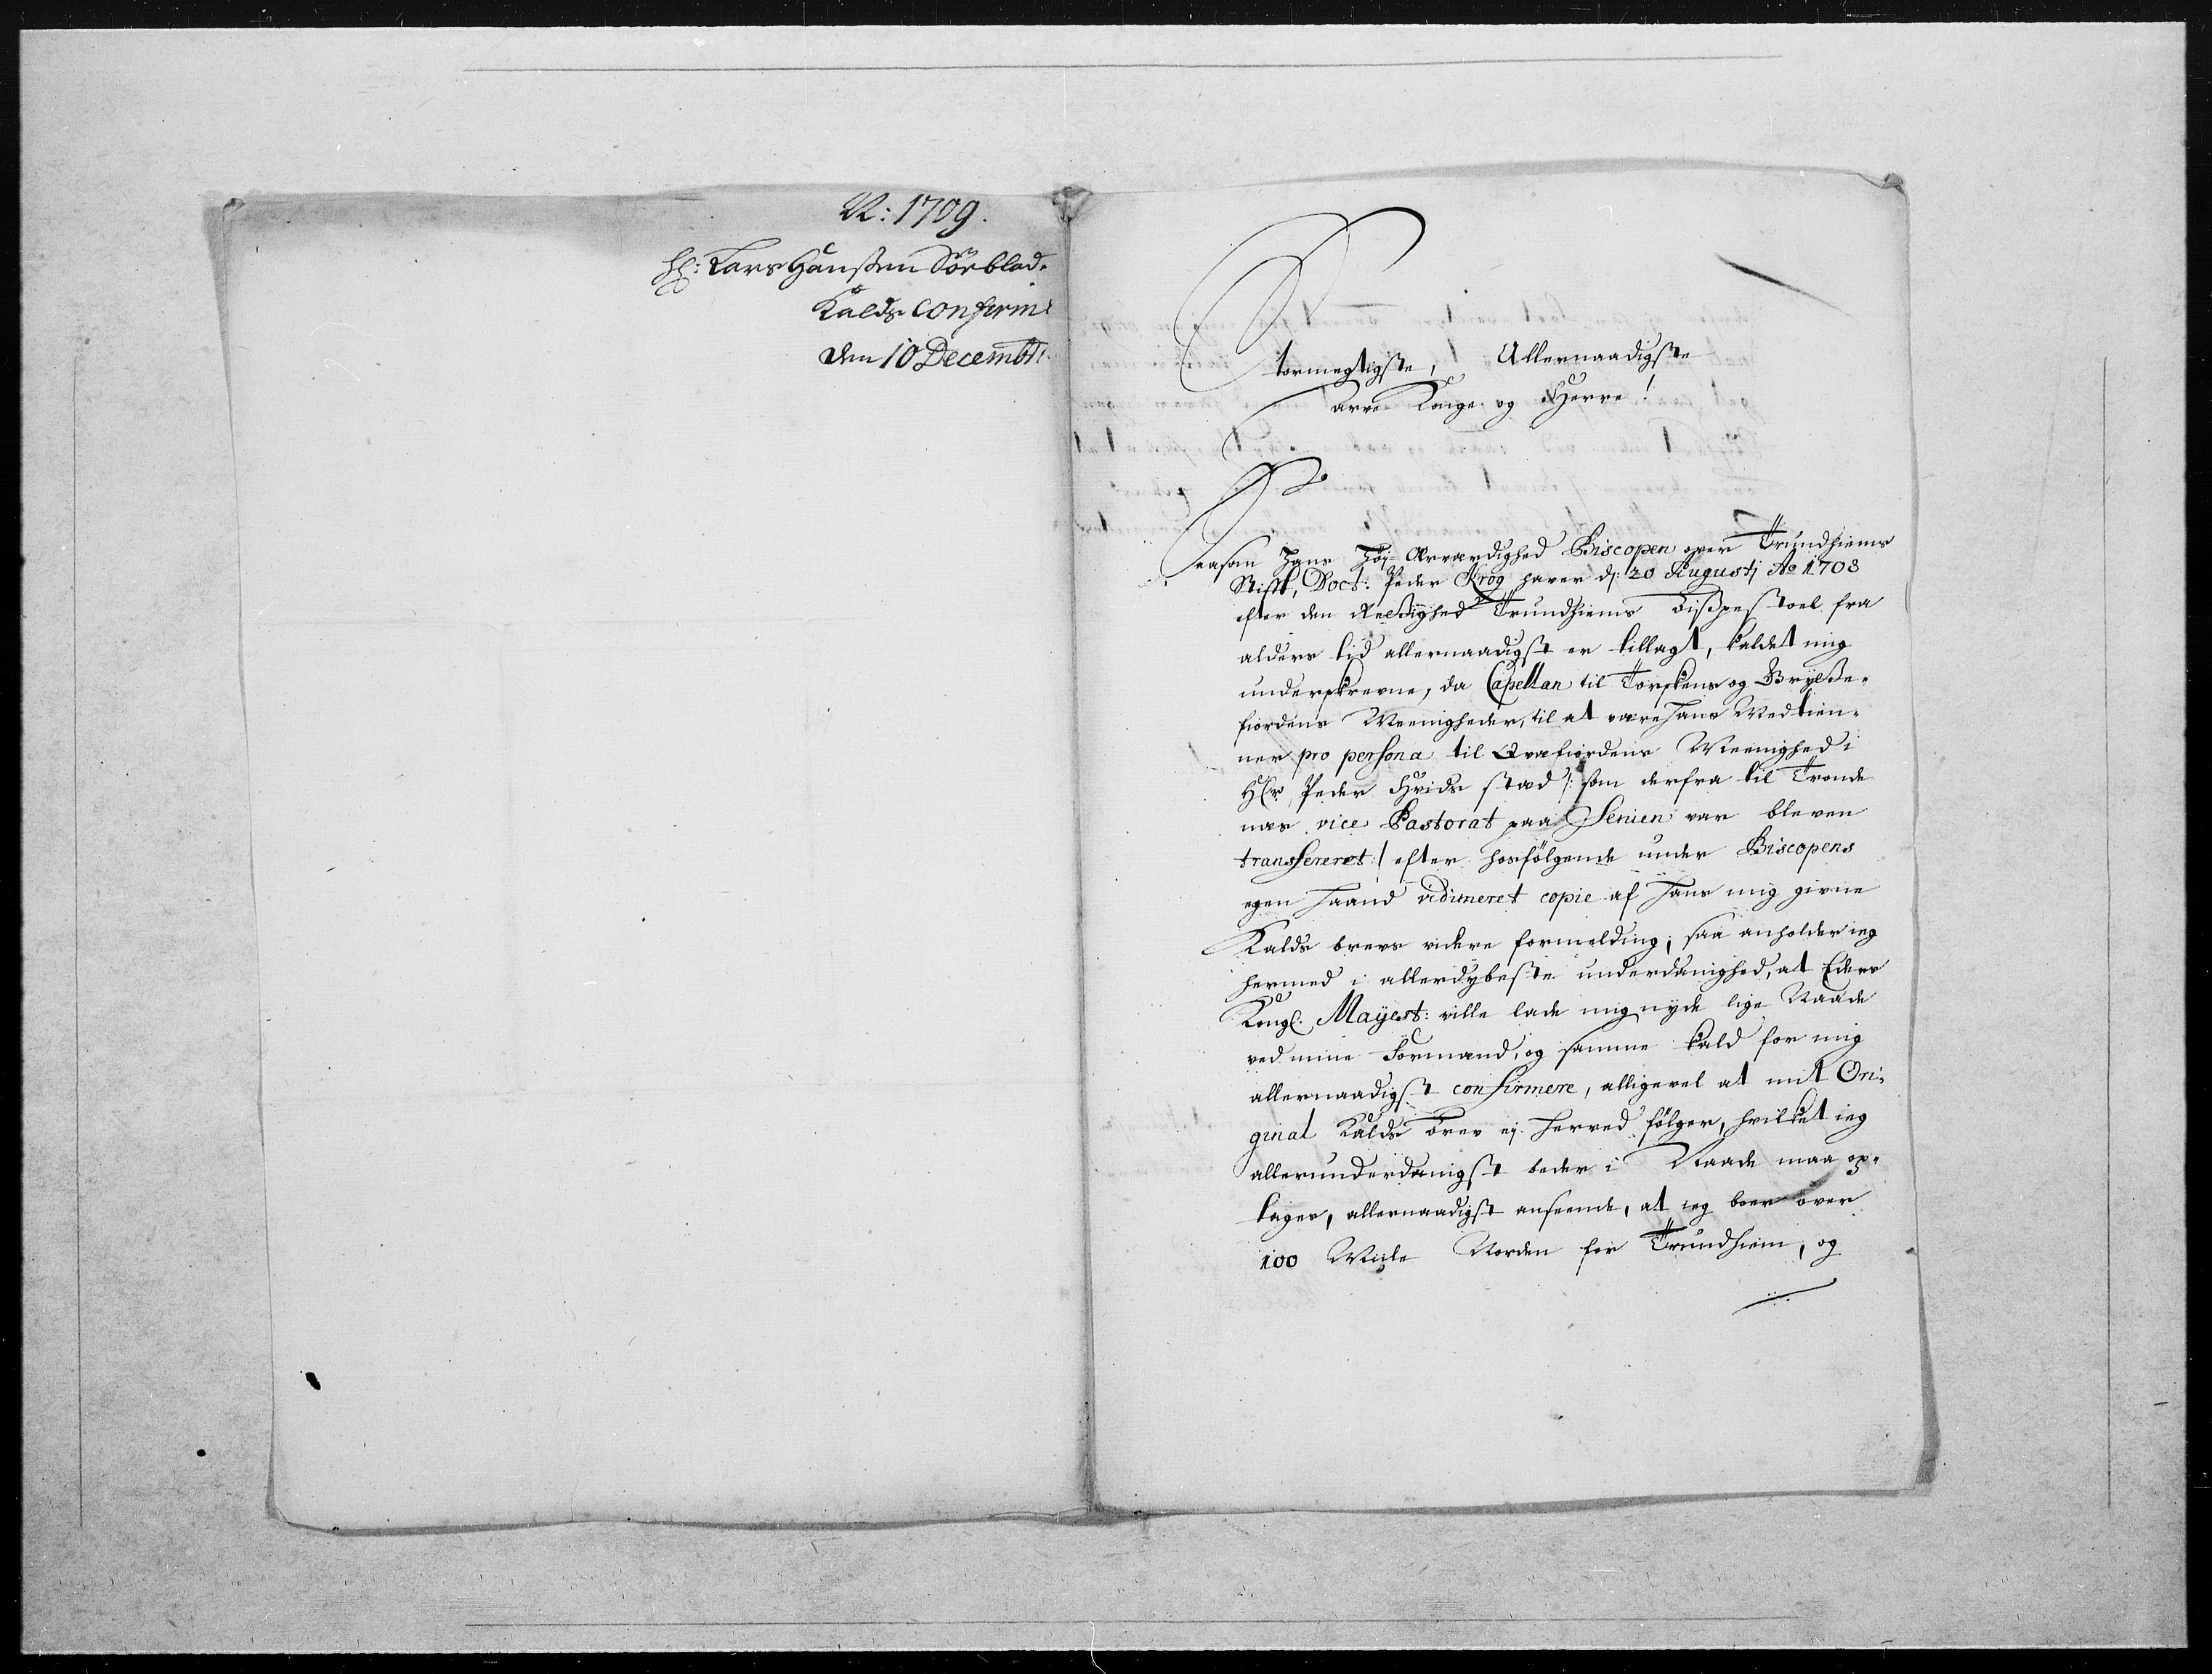 N: 1709.
H: Lars Hanssen Sörblad.
Kalds confirm:
den 10 Decembr:
Stormegtigste, Allernaadigste
Arve Konge og Herre!
Saasom Hans Höj-Ærværdighed Biscopen over Trundhiems
Stift, Doct: Peder Krog haver dj: 20 Augustj Ao 1708
efter den Rettighed Trundhiems Bispestoel fra
alders tid allernaadigst er tillagt, kaldet mig
underskrevne, da Capellan til Torskens og
fiordens Meenigheder, til at være Hans Medtien-
ner pro persona til Qvæfiordens Meenighed i
Hr Peder Hvids stæd /: som derfra til Tronde
næs vice Pastorat paa Senien var bleven
transfereret :/ efter hosfölgende under Biscopens
egen Haand vidimeret copie af Hans mig givne
Kalds brevs videre formelding; saa anholder ieg
hermed i allerdybeste underdanighed, at Eders
Kongl: Mayest: ville lade mig nyde lige Naade
ved mine Formænd, og samme kald for mig
allernaadigst confirmere, alligevel at mit Ori-
ginal Kalds brev ej herved fölger, hvilket ieg
allerunderdanigst beder i Naade maa op-
tages, allernaadigst anseende, at ieg boer over
100 Miile Norden for Trundhiem, og